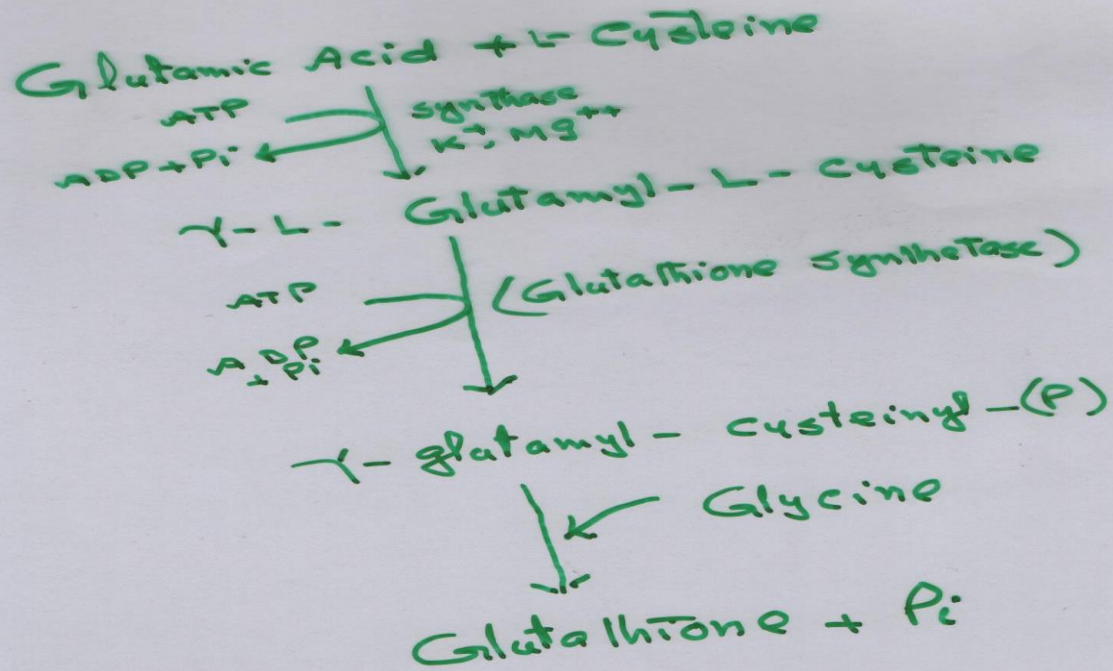 Glutamic Acid + L- Cysteine
ATP
synthase
K+, Mg++
ADP+Pi
γ-L- Glutamyl-L-Cysteine
ATP
(Glutathione synthetase)
ADP
+ Pi
γ- glutamyl- cysteinyl-(P)
Glycine
Glutathione + Pi